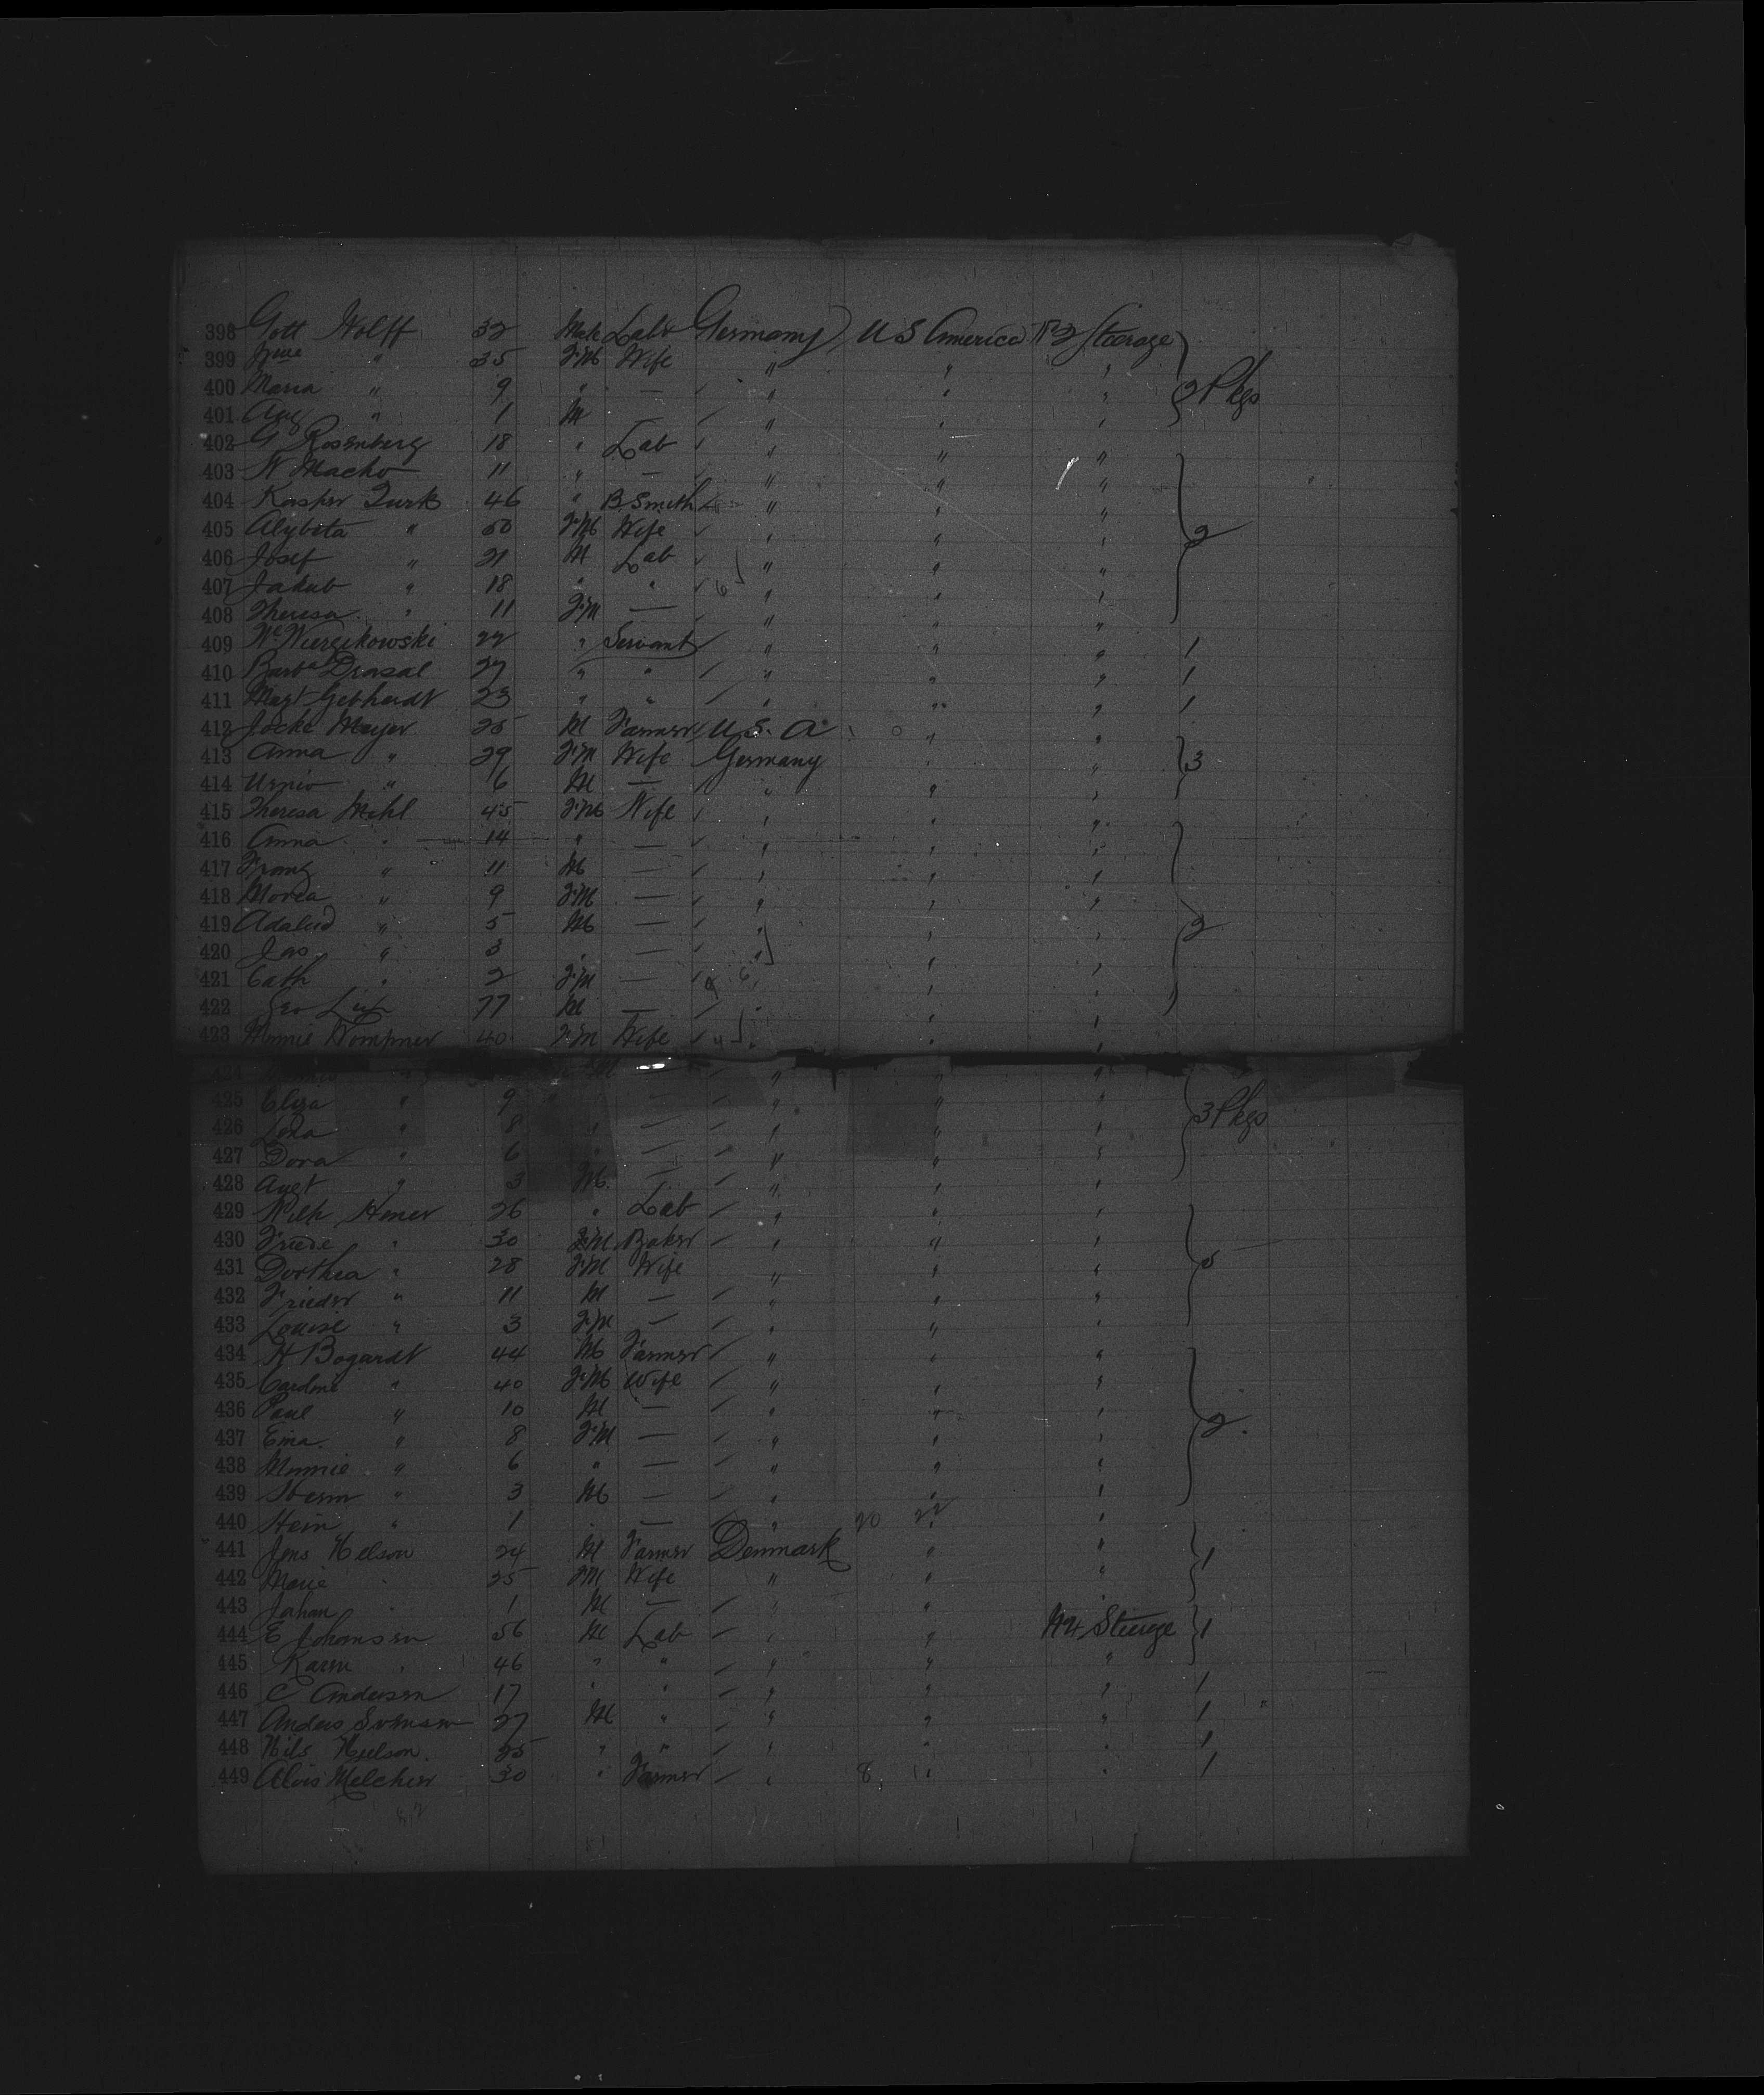 398 Gott Wolff 32 Male Labr Germany U S America Nº 2 Steerage
399 " 35 F.M Wife " " "
400 Maria " 9 " — " " " 2 Pkgs
401 Aug " 1 M — " " "
402 G Rosenberg 18 " Lab " " "
403 N Macho 11 " — " " "
404 Kasper Turk 46 " B Smith " " "
405 Alybeta " 50 F.M Wife " " " 2
406 Josef " 21 M Lab " " "
407 Jakub " 18 " " " " "
408 Theresa " 11 F.M — " " "
409 Wierzikowski 22 " Servant " " " 1
410 Barba Drasal 27 " " " " " 1
411 Magt Gebhardt 23 " " " " " 1
412 Jocke Meyer 25 M Farmer U. S. A " "
413 Anna " 29 F.M Wife Germany " " 3
414 " 6 M — " " "
415 Theresa Mehl 45 F.M Wife " " "
416 Anna " 14 " — " " "
417 Franz " 11 M — " " "
418 Morea " 9 F.M — " " "
419 " 5 M — " " " 2
420 Jas " 3 " — " " "
421 Cath " 2 F.M — " " "
422 Geo 77 M — " " "
423 Minnie Wompner 40 F.M Wife " " "
424 " " " "
425 Eliza " 9 " — " " " 3 Pkgs
426 Lena " 8 " — " " "
427 Dora " 6 " — " " "
428 Augt " 3 M — " " "
429 Wilh Hener 26 " Lab " " "
430 Friede " 30 F.M Baker " " "
431 Dorthea " 28 F.M Wife " " "
432 Frieder " 11 M — " " "
433 Louise " 3 F.M — " " "
434 H Bogardt 44 M Farmer " " "
435 Cardine " 40 F.M Wife " " "
436 Paul " 10 M — " " " 2
437 Ema " 8 F.M — " " "
438 Minnie " 6 " — " " "
439 Herm " 3 M — " " "
440 Hein " 1 " — " 20 22 "
441 Jens Nelson 24 M Farmer Denmark " " 1
442 Marie " 25 F.M Wife " " "
443 Johan " 1 M — " "
444 E Johansen 56 M Lab " " Nº 4 Steerage 1
445 Karen " 46 " " " " "
446 C Andersen 17 " " " " " 1
447 Anders Svensen 27 M " " " " 1
448 Nils Neelson 25 " " " " " 1
449 Alois Melcher 30 " Farmer " 8 " " 1